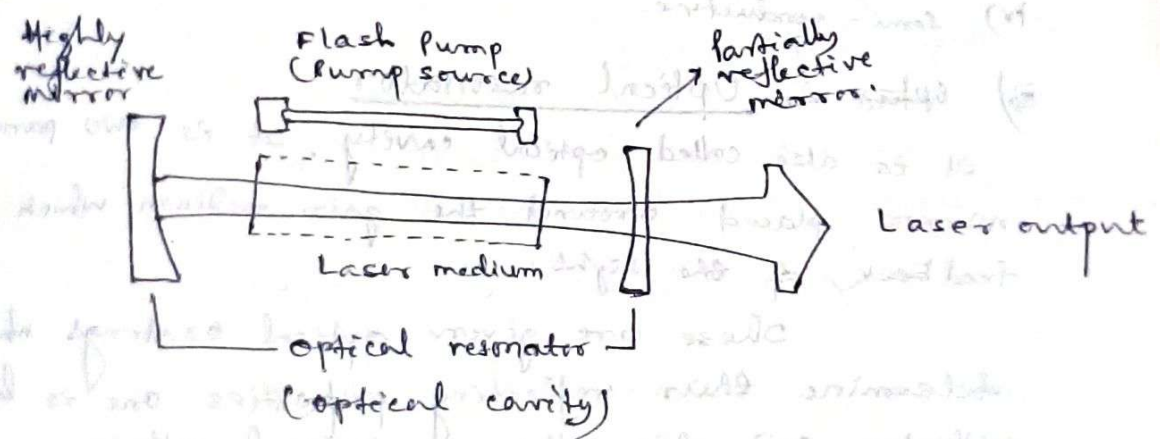 Highly
reflective
mirror
Flash Pump
(Pump source)
Partially
reflective
mirror.
Laser medium
Laser output
optical resonator
(optical cavity)